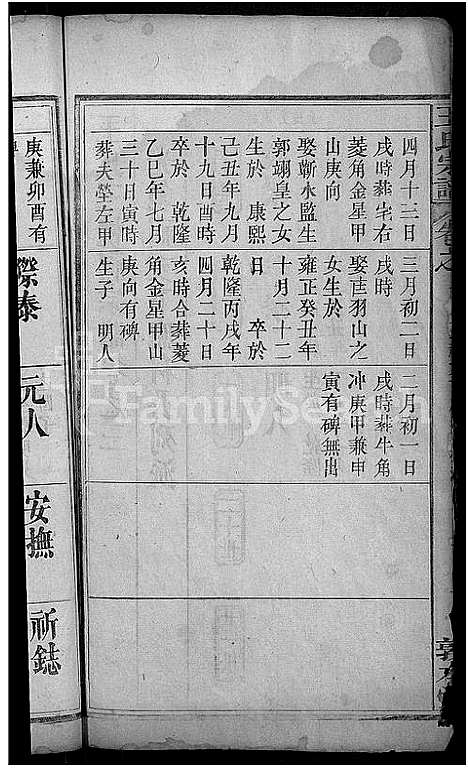 四月十三日
戌時葬宅右
菱角金星甲
山庚向
娶蘄水監生
郭翊皇之女
生於 康熙
己丑年九月
十九日酉時
卒於 乾隆
乙巳年七月
三十日寅時
葬夫塋左甲
三月初二日
戌時
娶陸羽山之
女生於
雍正癸丑年
十月二十二
日 卒於
乾隆丙戌年
四月二十日
亥時合葬菱
角金星甲山
庚向有碑
生子 明人
二月初一日
戌時葬牛角
冲庚甲兼申
寅有碑無出
王氏宗譜
庚兼卯酉有
際泰
元人
安撫
祈鋕
FamilySearch